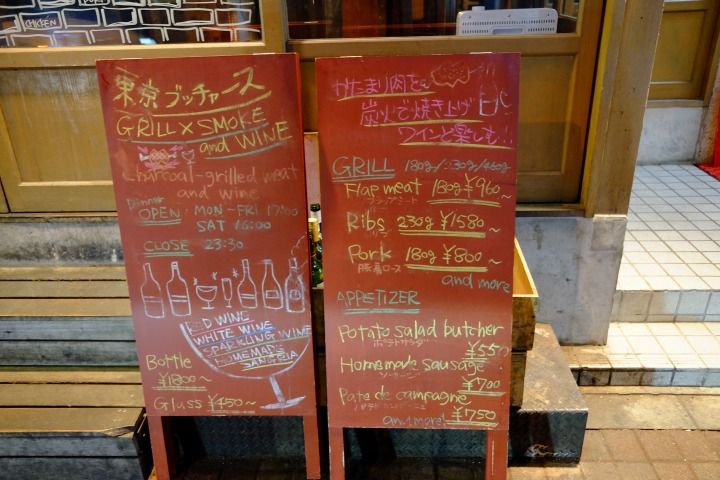 CHICKEN
東京ブッチャース
GRILL X SMOKE
and WINE
Charcoal-grilled meat
and wine
Dinner
OPEN MON-FRI 17:00
SAT 16:00
CLOSE 23:30
RED WINE
WHITE WINE
SPARKLING WINE
HOMEMADE
SANGRIA
Bottle
¥1800~
Glass ¥450~
かたまり肉を
炭火で焼き上げ
ワインと楽しむ!
GRILL 180g/230g/460g
Flap meat 180g ¥960~
フラップミート
Ribs 230g ¥1580~
リブ
Pork 180g ¥800~
豚肩ロース
and more
APPETIZER
Potato salad butcher
ポテトサラダ
¥550
Homemade sausage
ソーセージ
¥700
Pate de campagne
パテドカンパーニュ
¥750
and more!